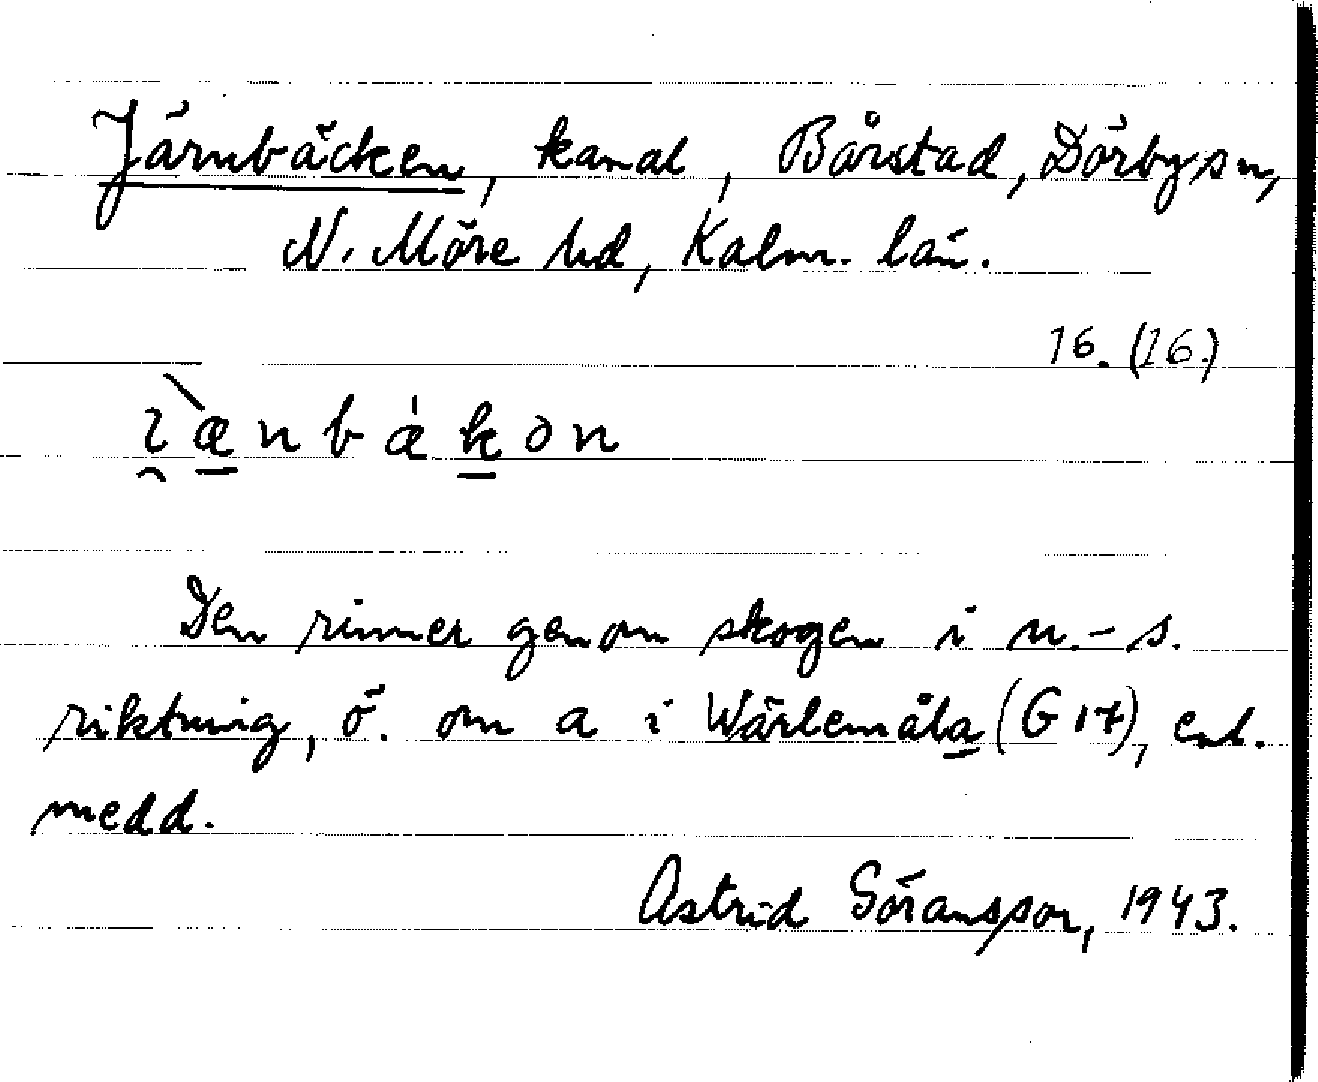 Järnbäcken, kanal, Bårstad, Dörby sn,
N. Möre hd, Kalm. län.
16. (16.)
Den rinner genom skogen i n.-s.
riktning, ö. om a i Wärlemåla (G 17), enl.
medd.
Astrid Göransson, 1943.